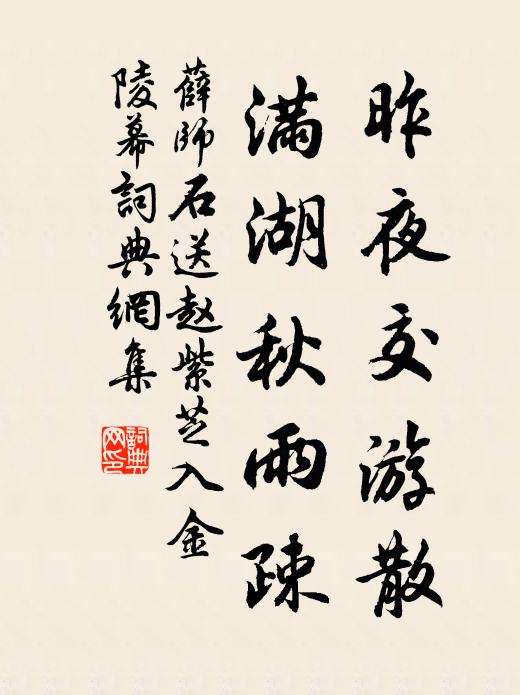 昨夜交游散
满湖秋雨疎
薛師石送赵紫芝入金
陵幕詞典網集
詞典网印